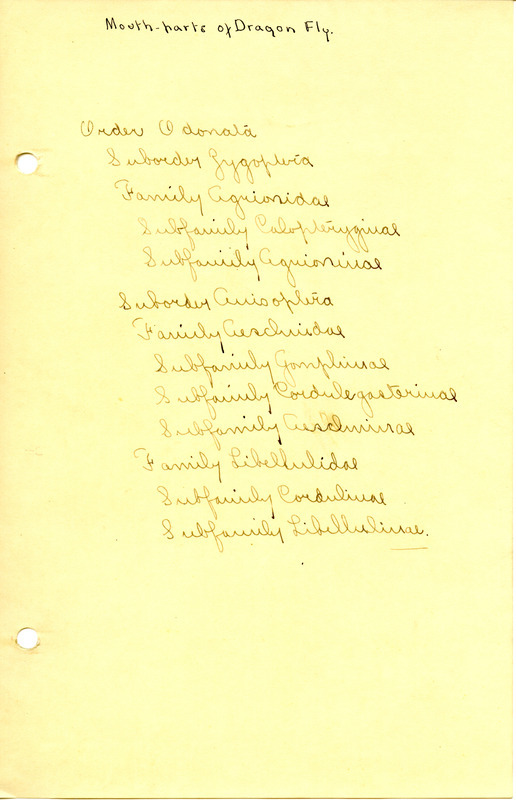 Mouth-parts of Dragon Fly.
Order Odonata
Suborder Zygoptera
Family Agrionidae
Subfamily Calopteryginae
Subfamily Agrioninae
Suborder Anisoptera
Family Aeschnidae
Subfamily Gomphinae
Subfamily Cordulegasterinae
Subfamily Aeschninae
Family Libellulidae
Subfamily Cordulinae
Subfamily Libellulinae.